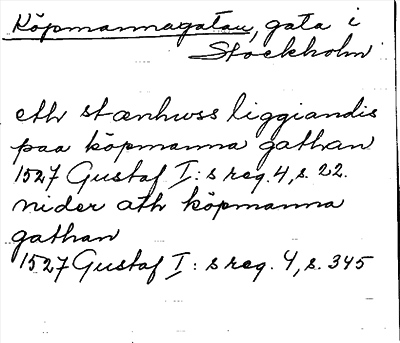 Köpmannagatan, gata i
Stockholm
eth stænhwss liggiandis
paa köpmanna gathan
1527 Gustaf I:s reg. 4, s. 22.
nider ath köpmanna
gathan
1527 Gustaf I:s reg. 4, s. 345